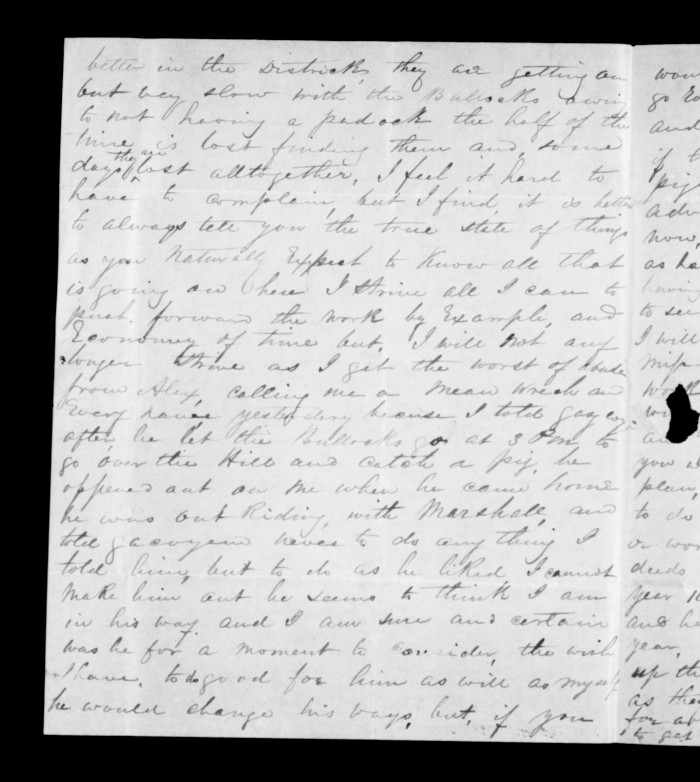 better in the Districk, they are getting on
but vey slow with the Bullocks owing
to not having a padock the half of the
time is lost finding them and, some
days they are lost alltogether, I feel it hard to
have to complain, but I find it is better
to always tell you the true state of things
as you Naturally Expect to Know all that
is going on here I Strive all I can to
push forward the work by Example, and
Economy of time but, I will not any
longer Strive as I get the worst of abuse
from Alex, calling me a mean wrech and
Every name yesterdery becuse I told
after, he let the Bullocks go at 3 Pm to
go over the Hill and catch a pig, he
oppened out on me when he came home
he was out Riding, with Marshall, and
told never to do any thing I
told him, but to do as he liked I cannot
make him out he seems to think I am
in his way and I am sure and certain
was he for a moment to consider, the wish
I have, to do good for him as will as myself
he would change his ways, but, if you
wou
go
and
if t
pig
adv
now,
as ha
having
to see
I will
mis
work
wi
an
you
plan
to do
or wor
deeds
year
and he
year,
up th
as tha
for a
to get